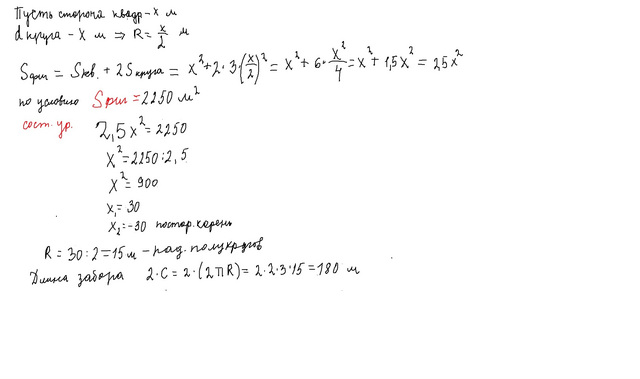 Пусть сторона квадр - x м
d круга - x м ⇒ R = x/2 м
Sфиг = Sкв. + 2Sкруга = x² + 2·3·(x/2)² = x² + 6·x²/4 = x² + 1,5x² = 2,5x²
по условию Sфиг = 2250 м²
сост. ур. 2,5x² = 2250
x² = 2250:2,5
x² = 900
x₁ = 30
x₂ = -30 постор. корень
R = 30:2 = 15 м - рад. полукругов
Длина забора 2·C = 2·(2πR) = 2·2·3·15 = 180 м